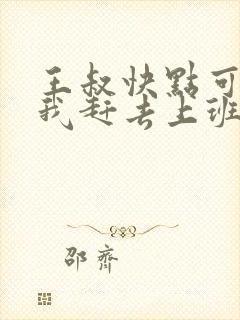 王叔快點可
我赶去上班
邵齊